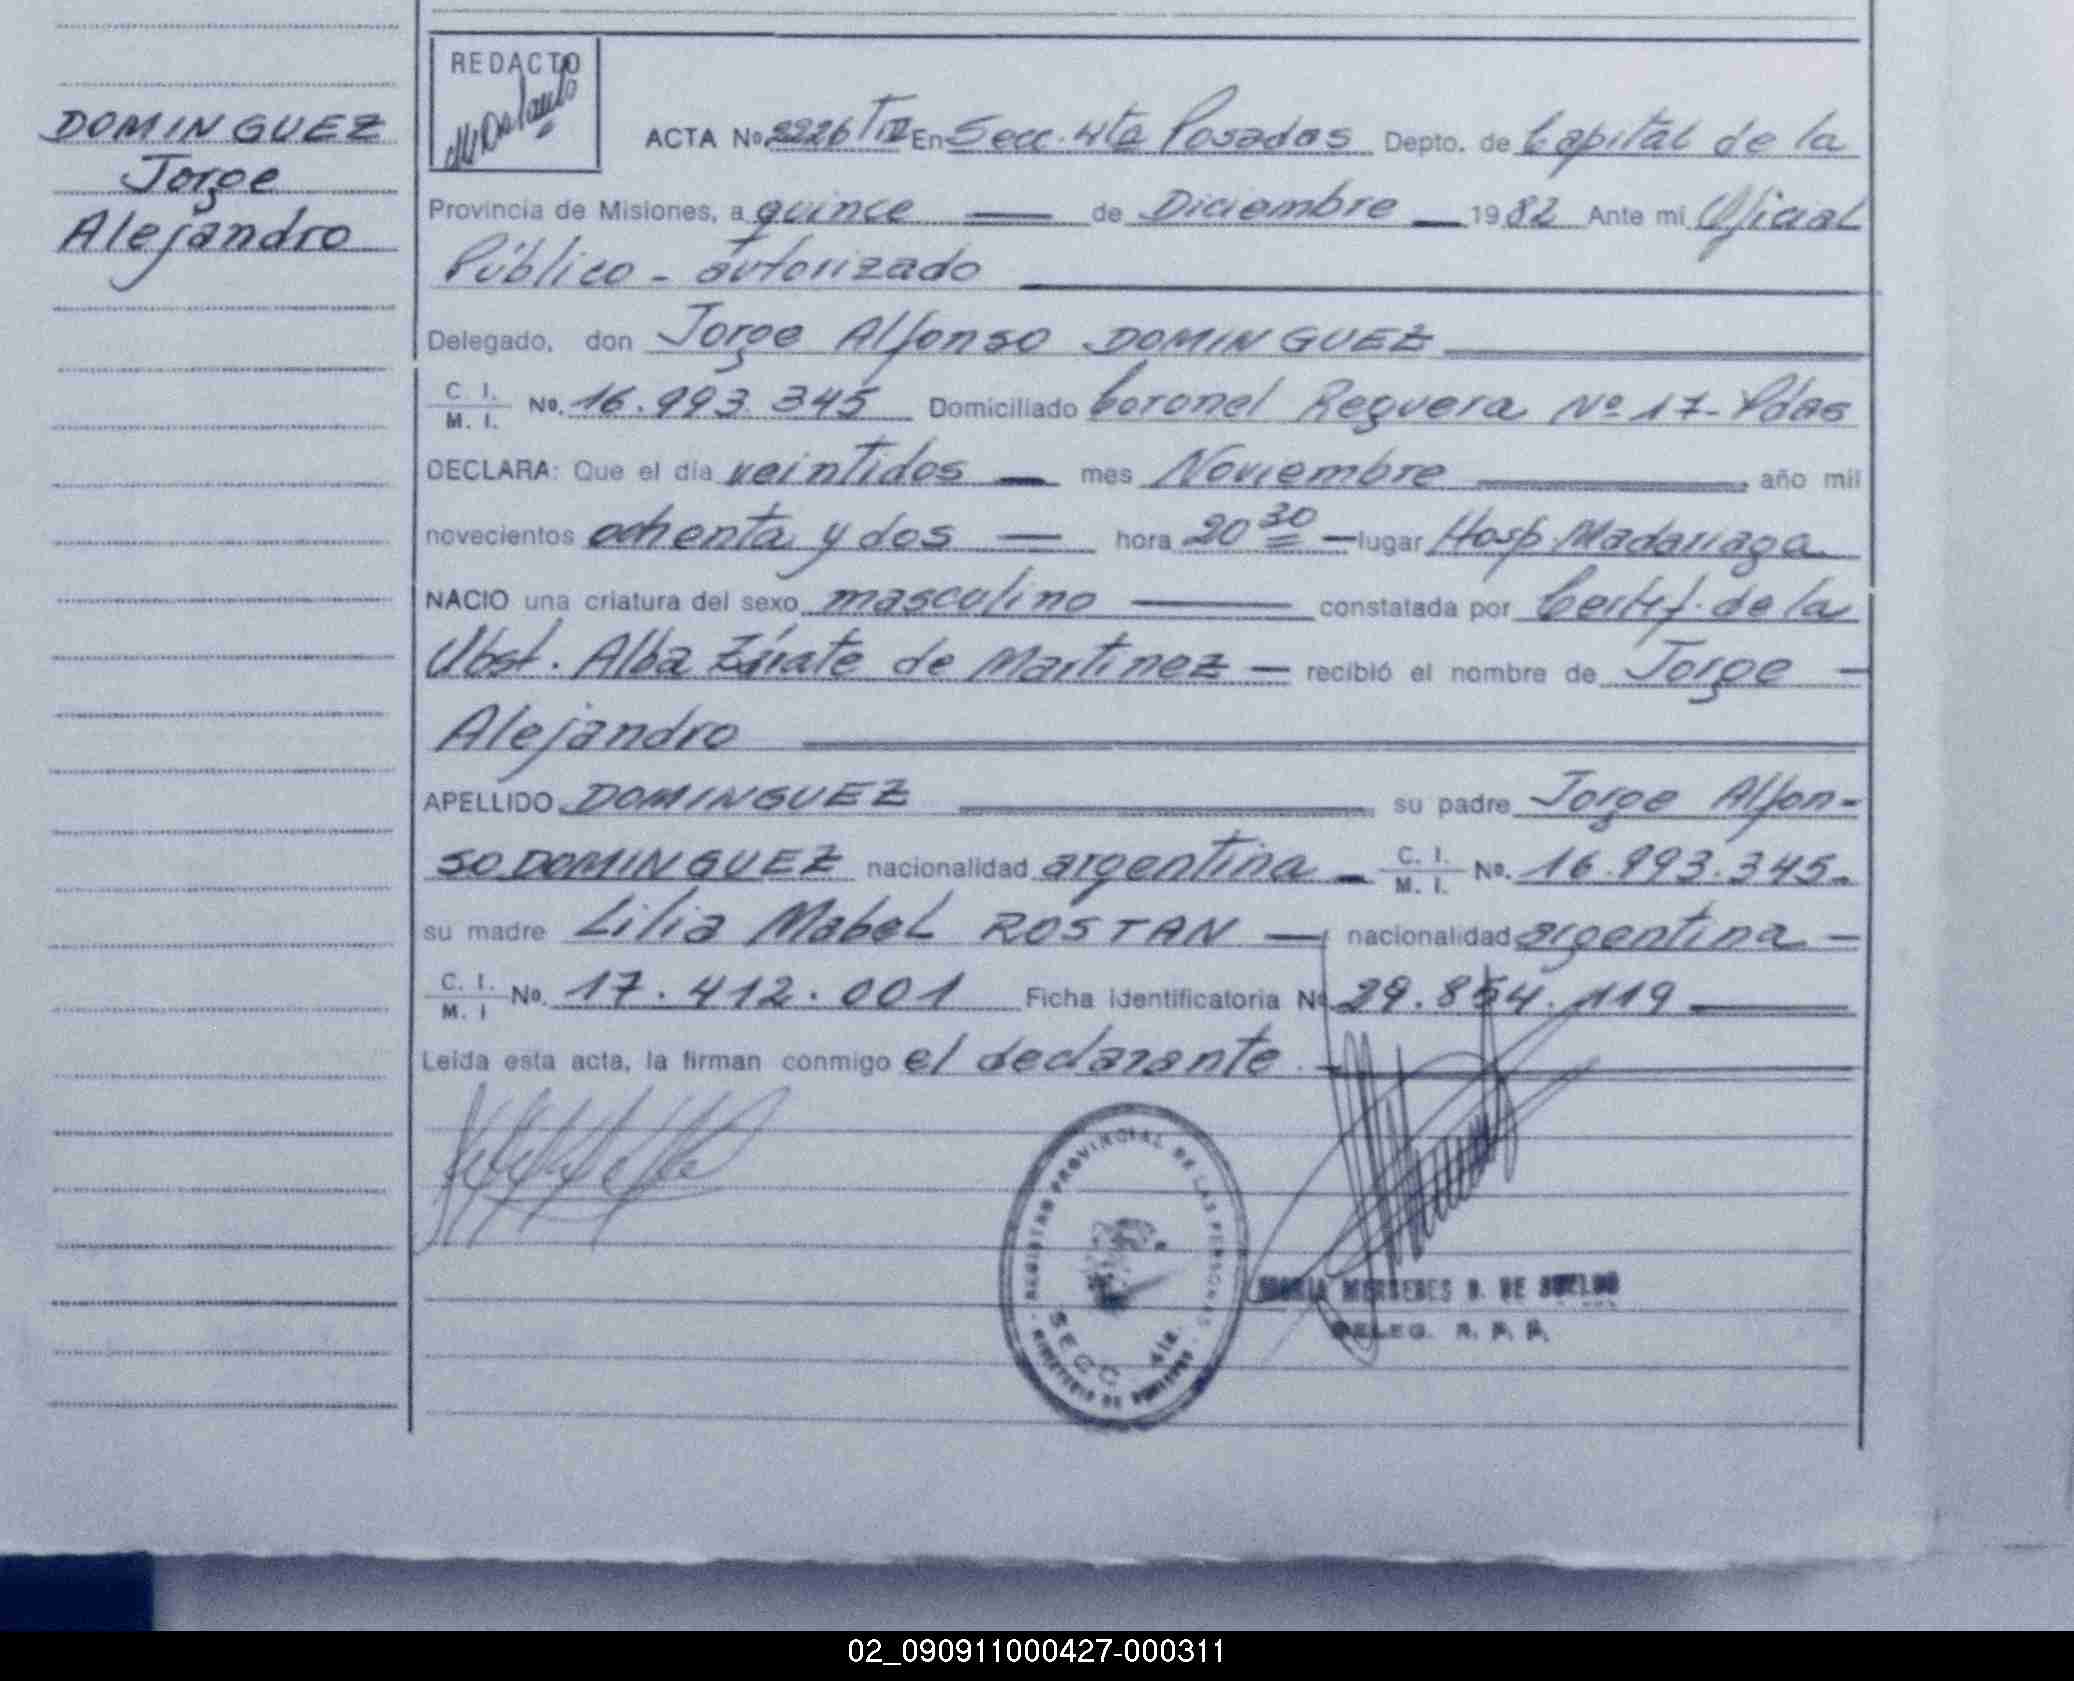 DOMINGUEZ
Jorge
Alejandro
REDACTO
ACTA Nº 2226 T IV En Secc. 4ta Posadas Depto. de Capital de la
Provincia de Misiones, a quince de Diciembre 1982 Ante mi Oficial
Público - autorizado
Delegado, don Jorge Alfonso DOMINGUEZ
C. I.
M. I. Nº. 16.993.345 Domiciliado Coronel Reguera Nº 17- Pdas
DECLARA: Que el día veintidos mes Noviembre año mil
novecientos ochenta y dos hora 20 30 lugar Hosp. Madariaga
NACIO una criatura del sexo masculino constatada por Certif. de la
Obst. Alba Zárate de Martinez recibió el nombre de Jorge
Alejandro
APELLIDO DOMINGUEZ su padre Jorge Alfon-
so DOMINGUEZ nacionalidad argentina C. I. M. I. Nº. 16.993.345.
su madre Lilia Mabel ROSTAN nacionalidad argentina
C. I. M. I Nº. 17.412.001 Ficha identificatoria Nº 29.854.119
Leída esta acta, la firman conmigo el declarante.
REGISTRO PROVINCIAL DE LAS PERSONAS
SECC. 4ta.
MINISTERIO DE GOBIERNO
MARIA MERCEDES D. DE SUELDO
DELEG. R. P. P.
02_090911000427-000311